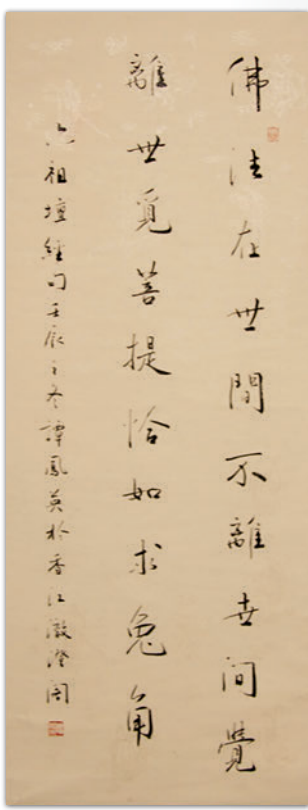 佛法在世間不離世间覺
離世覓菩提恰如求兔角
六祖壇經句壬辰之冬譚鳳英於香江澂澄閣